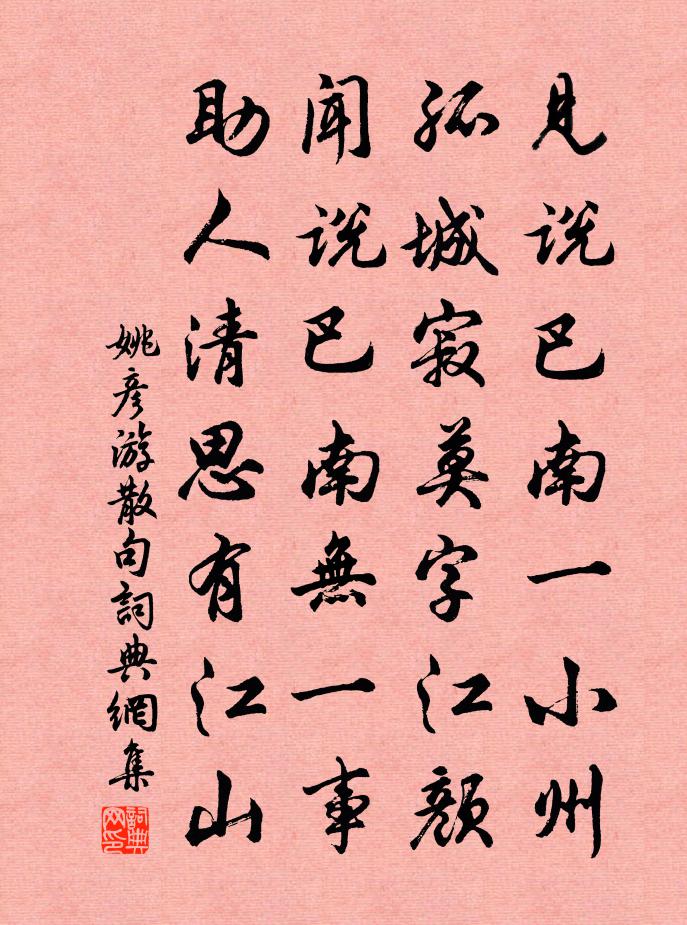 見説巴南一小州
孤城寂莫字江顏
聞説巴南無一事
助人清思有江山
姚彦游散句詞典網集
詞典网印